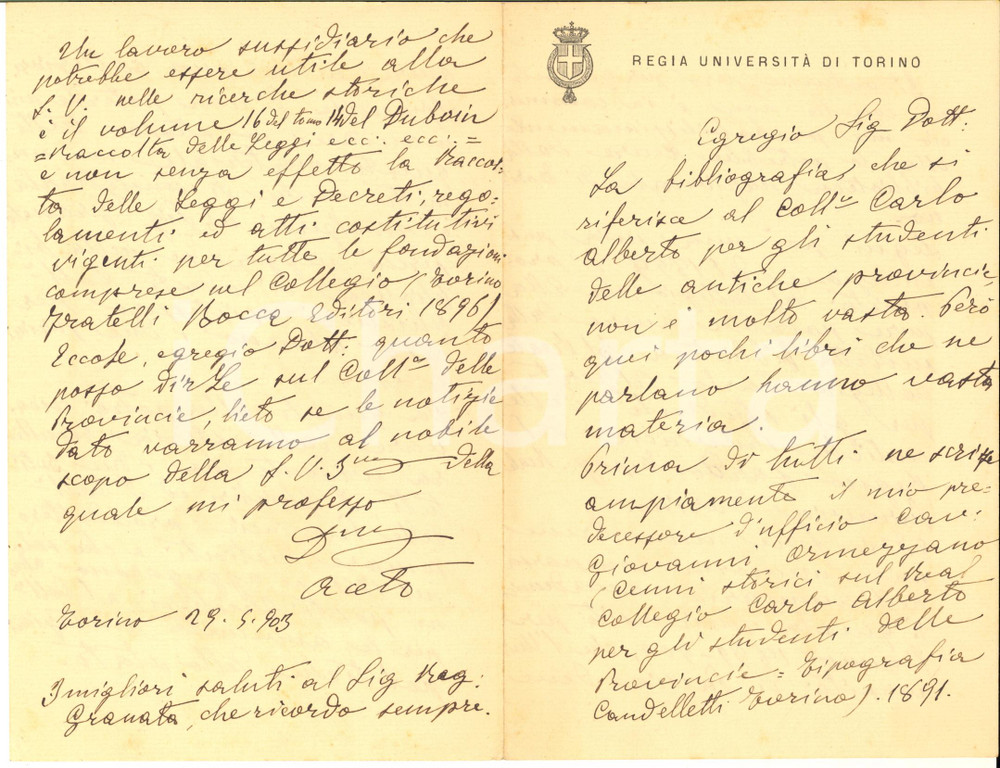 REGIA UNIVERSITÀ DI TORINO
Egregio Sig Dott:
La bibliografia, che si
riferisce al Coll.º Carlo
Alberto per gli studenti
delle antiche provincie,
non è molto vasta. Però
quei pochi libri che ne
parlano hanno vasta
materia.
Prima di tutti ne scrisse
ampiamente il mio pre=
decessore d'ufficio Cav:
Giovanni Ormezzano
(Cenni storici sul Real
Collegio Carlo Alberto
per gli studenti delle
Provincie = Tipografia
Candelletti Torino). 1891.
Un lavoro sussidiario che
potrebbe essere utile alla
S. V. nelle ricerche storiche
è il volume 16 del tomo 14 del Duboin
= Raccolta delle Leggi ecc: ecc: =
e non senza effetto la Raccol=
ta delle Leggi e Decreti, rego=
lamenti ed atti costitutivi
vigenti per tutte le fondazioni
comprese nel Collegio (Torino
Fratelli Bocca Editori 1896)
Eccole, egregio Dott: quanto
posso dirLe sul Coll.º delle
Provincie, lieto se le notizie
date varranno al nobile
scopo della S. V. Ill.ma della
quale mi professo
Dev.mo
Aceto
Torino 29. 5. 903
I migliori saluti al Sig Rag:
Granata, che ricordo sempre.
iCharta